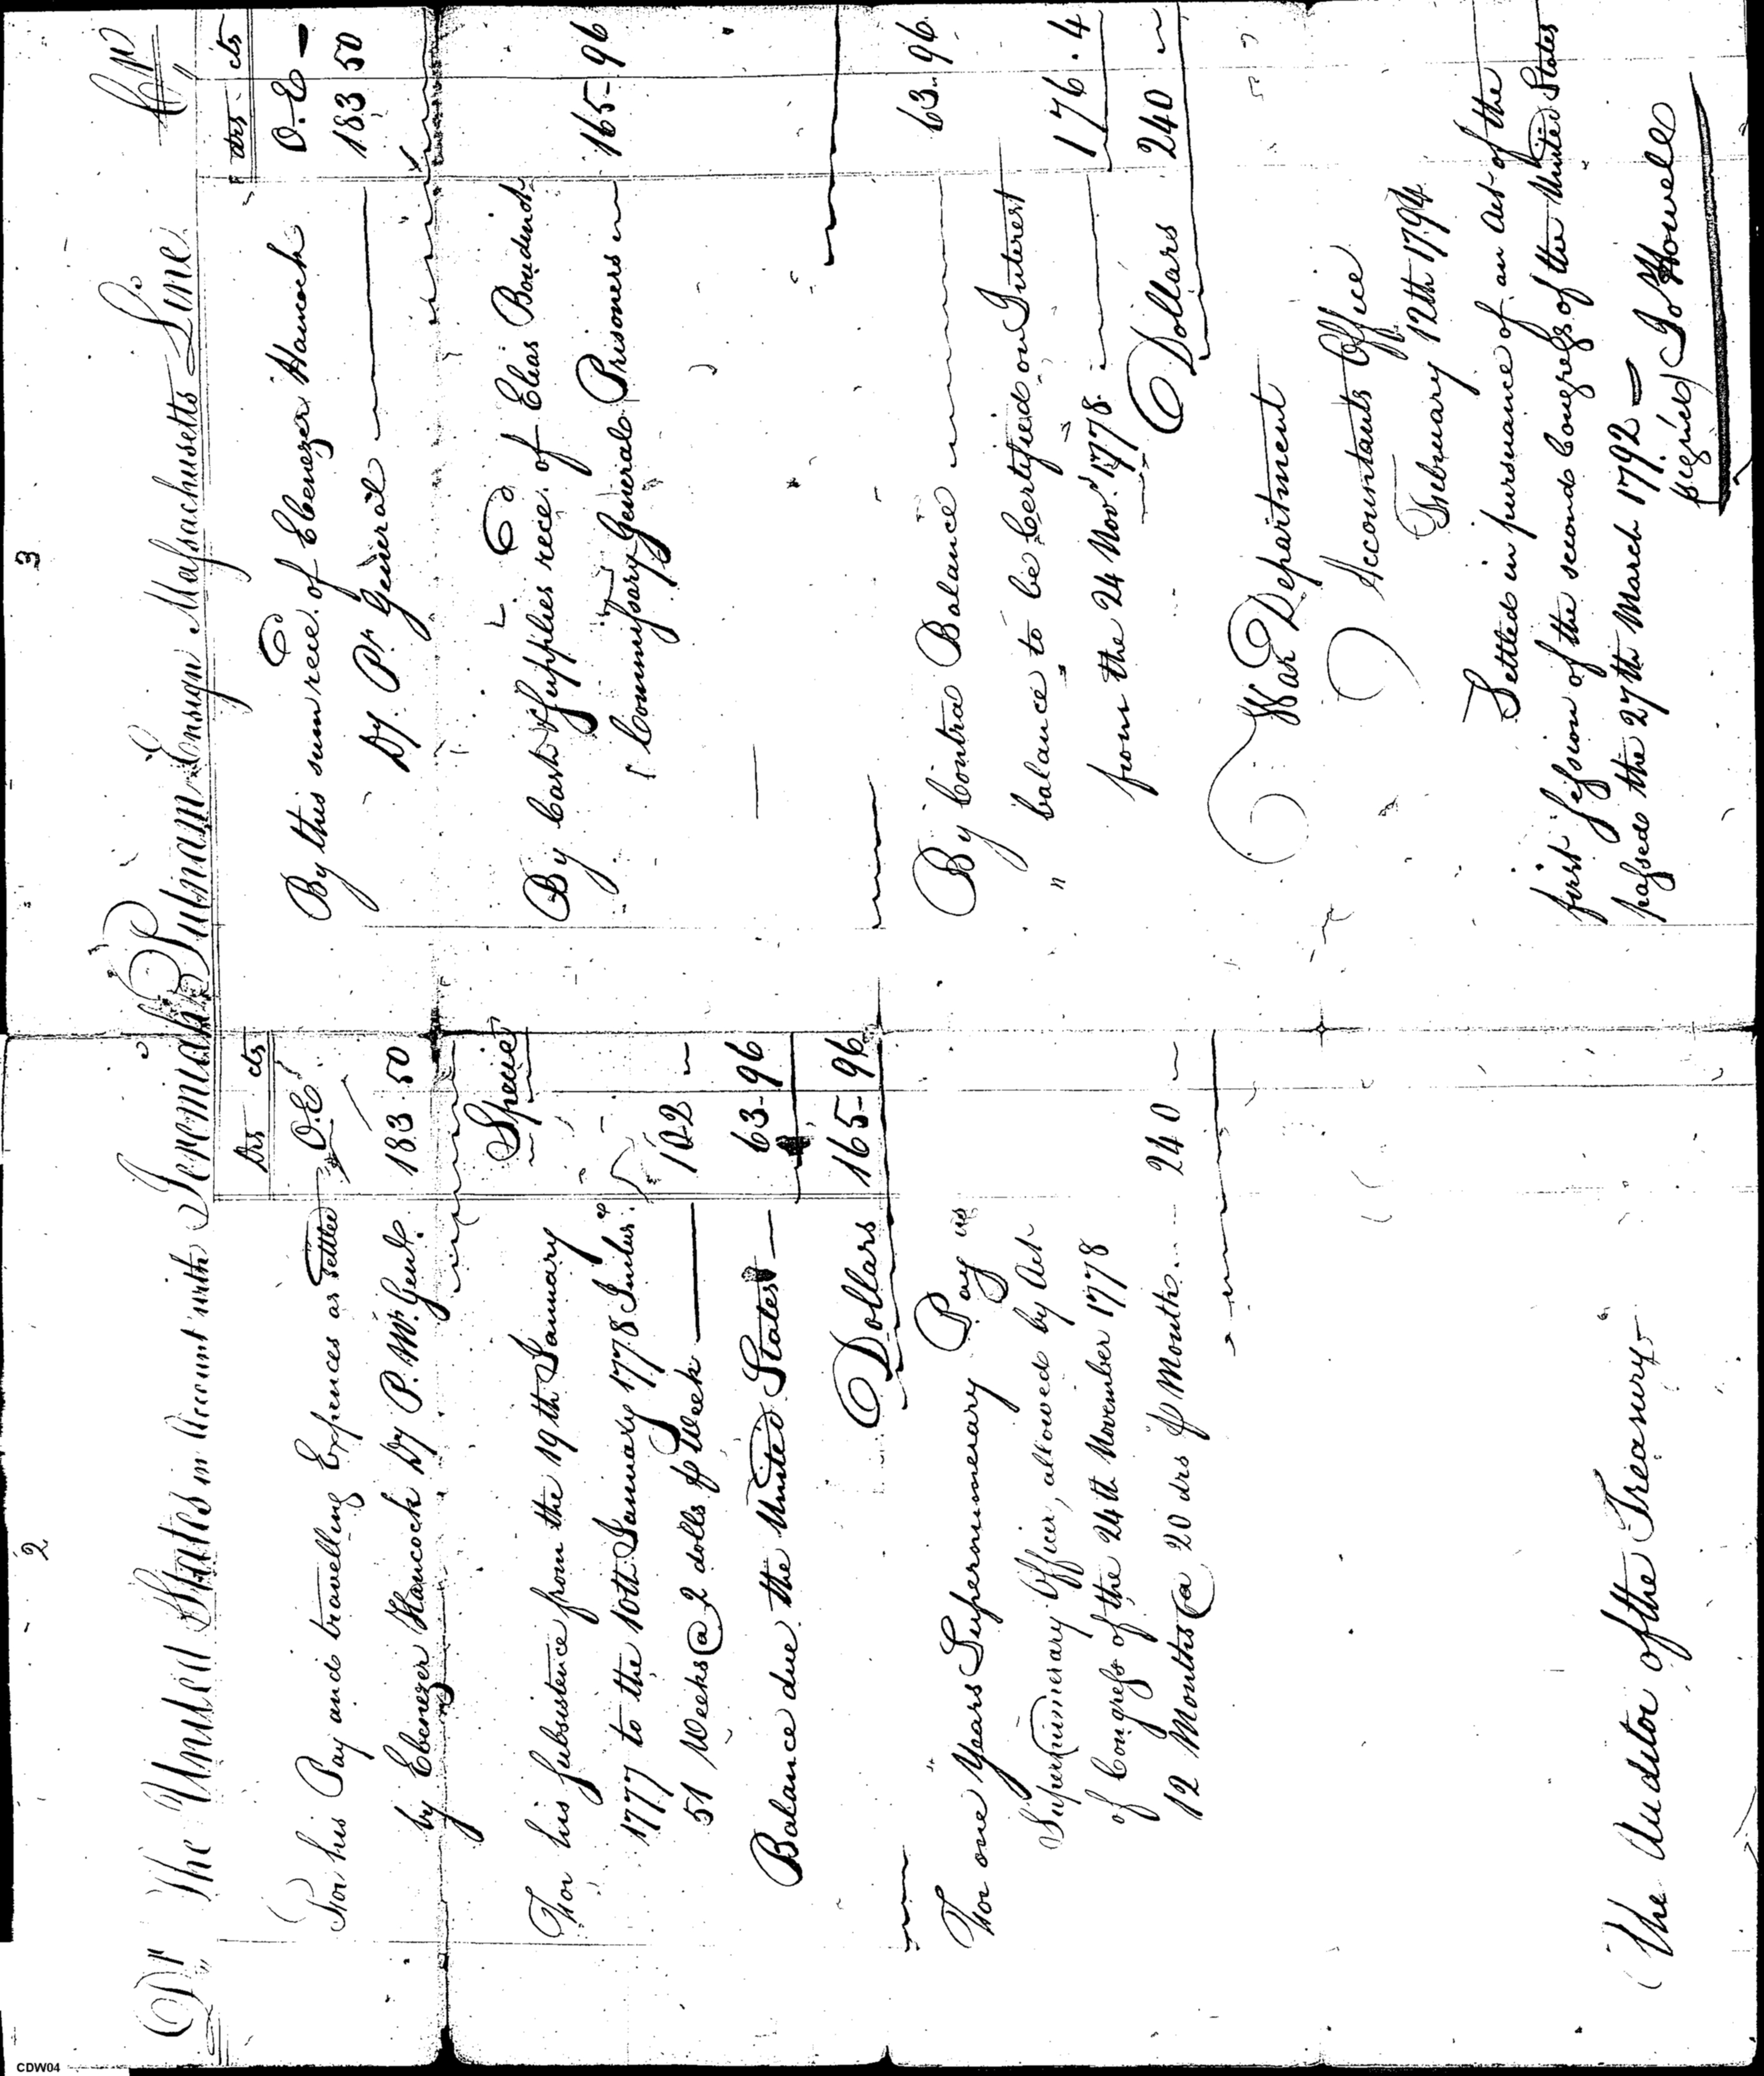 2
3
Dr The United States in Account with Jeremiah Putnam Ensign Massachusetts Line Cr
Drs cts
O.E.
For his Pay and travelling Expences as settled
by Ebenezer Hancock Dy P. Mr. Genl. 183 50
Specie
For his subsistence from the 19th January
1777 to the 10th January 1778 Inclus.
51 Weeks @ 2 dolls ⅌ Week 102
Balance due the United States 63 - 96
Dollars 165 - 96
For one Years Supernumerary Pay as
Supernumerary Officer, allowed by Act
of Congress of the 24th November 1778
12 Months @ 20 drs ⅌ Month 240
The Auditor of the Treasury
drs cts
O.E
By this sum rece. of Ebenezer Hancock 183 50
Dy. P. General
By Cash & Supplies rece. of Elias Boudinot
Commissary General Prisoners 165 - 96
By Contra Balance 63 - 96
" balance to be Certified on Interest
from the 24 Nov. 1778 176 . 4
Dollars 240
War Department
Accountants Office
February 12th 1794
Settled in pursuance of an Act of the
first session of the second Congress of the United States
passed the 27th March 1792 -
signed Jo Howell
CDW04